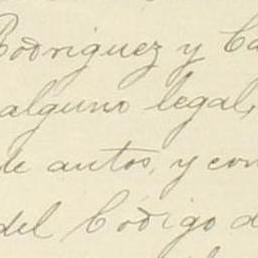 Rodriguez y Ca
alguno legal,
de autos, y con
del Código d